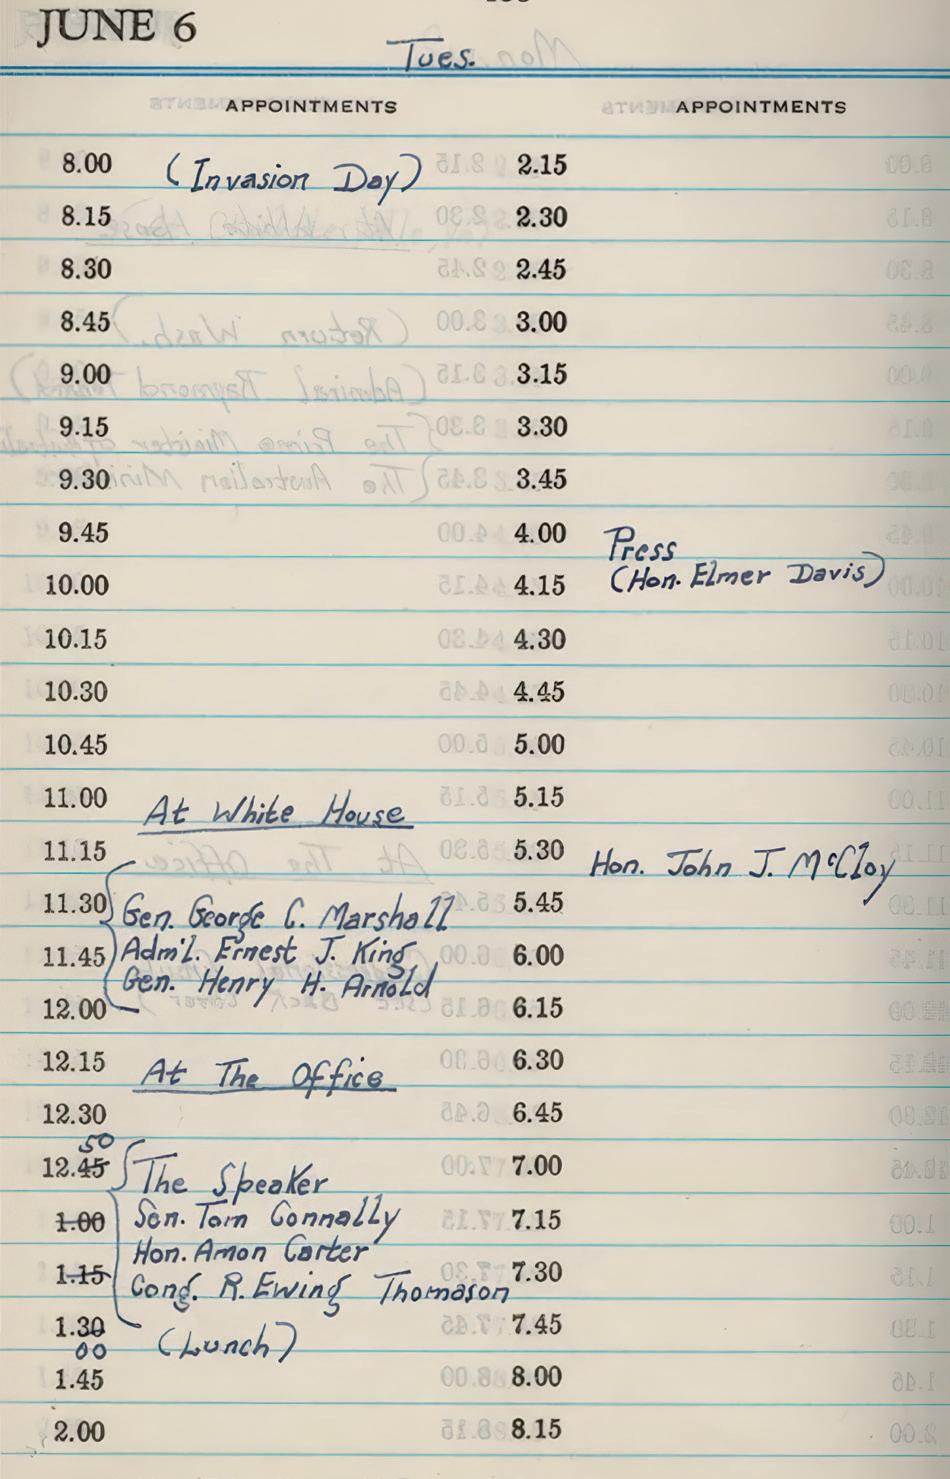 JUNE 6
Tues.
APPOINTMENTS
8.00 (Invasion Day)
8.15
8.30
8.45
9.00
9.15
9.30
9.45
10.00
10.15
10.30
10.45
11.00 At White House
11.15
11.30 Gen. George C. Marshall
11.45 Adm'l. Ernest J. King
Gen. Henry H. Arnold
12.00
12.15 At The Office
12.30
50
12.45 The Speaker
1.00 Sen. Tom Connally
Hon. Amon Carter
1.15 Cong. R. Ewing Thomason
1.30 (Lunch)
00
1.45
2.00
APPOINTMENTS
2.15
2.30
2.45
3.00
3.15
3.30
3.45
4.00 Press
4.15 (Hon. Elmer Davis)
4.30
4.45
5.00
5.15
5.30 Hon. John J. McCloy
5.45
6.00
6.15
6.30
6.45
7.00
7.15
7.30
7.45
8.00
8.15